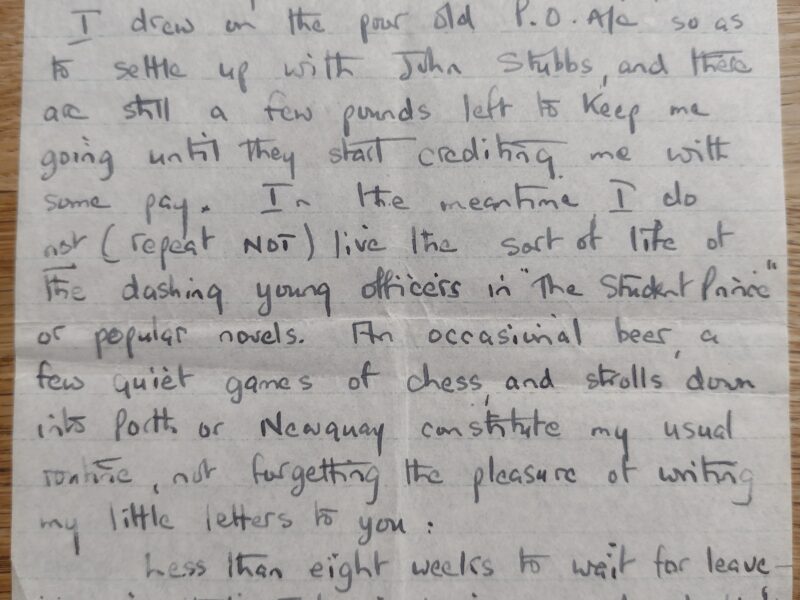 I drew on the poor old P.O. A/c so as
to settle up with John Stubbs, and there
are still a few pounds left to keep me
going until they start crediting me with
some pay. In the meantime I do
not (repeat NOT) live the sort of life of
the dashing young officers in "The Student Prince"
or popular novels. An occasional beer, a
few quiet games of chess, and strolls down
into Porth or Newquay constitute my usual
routine, not forgetting the pleasure of writing
my little letters to you:
Less than eight weeks to wait for leave —